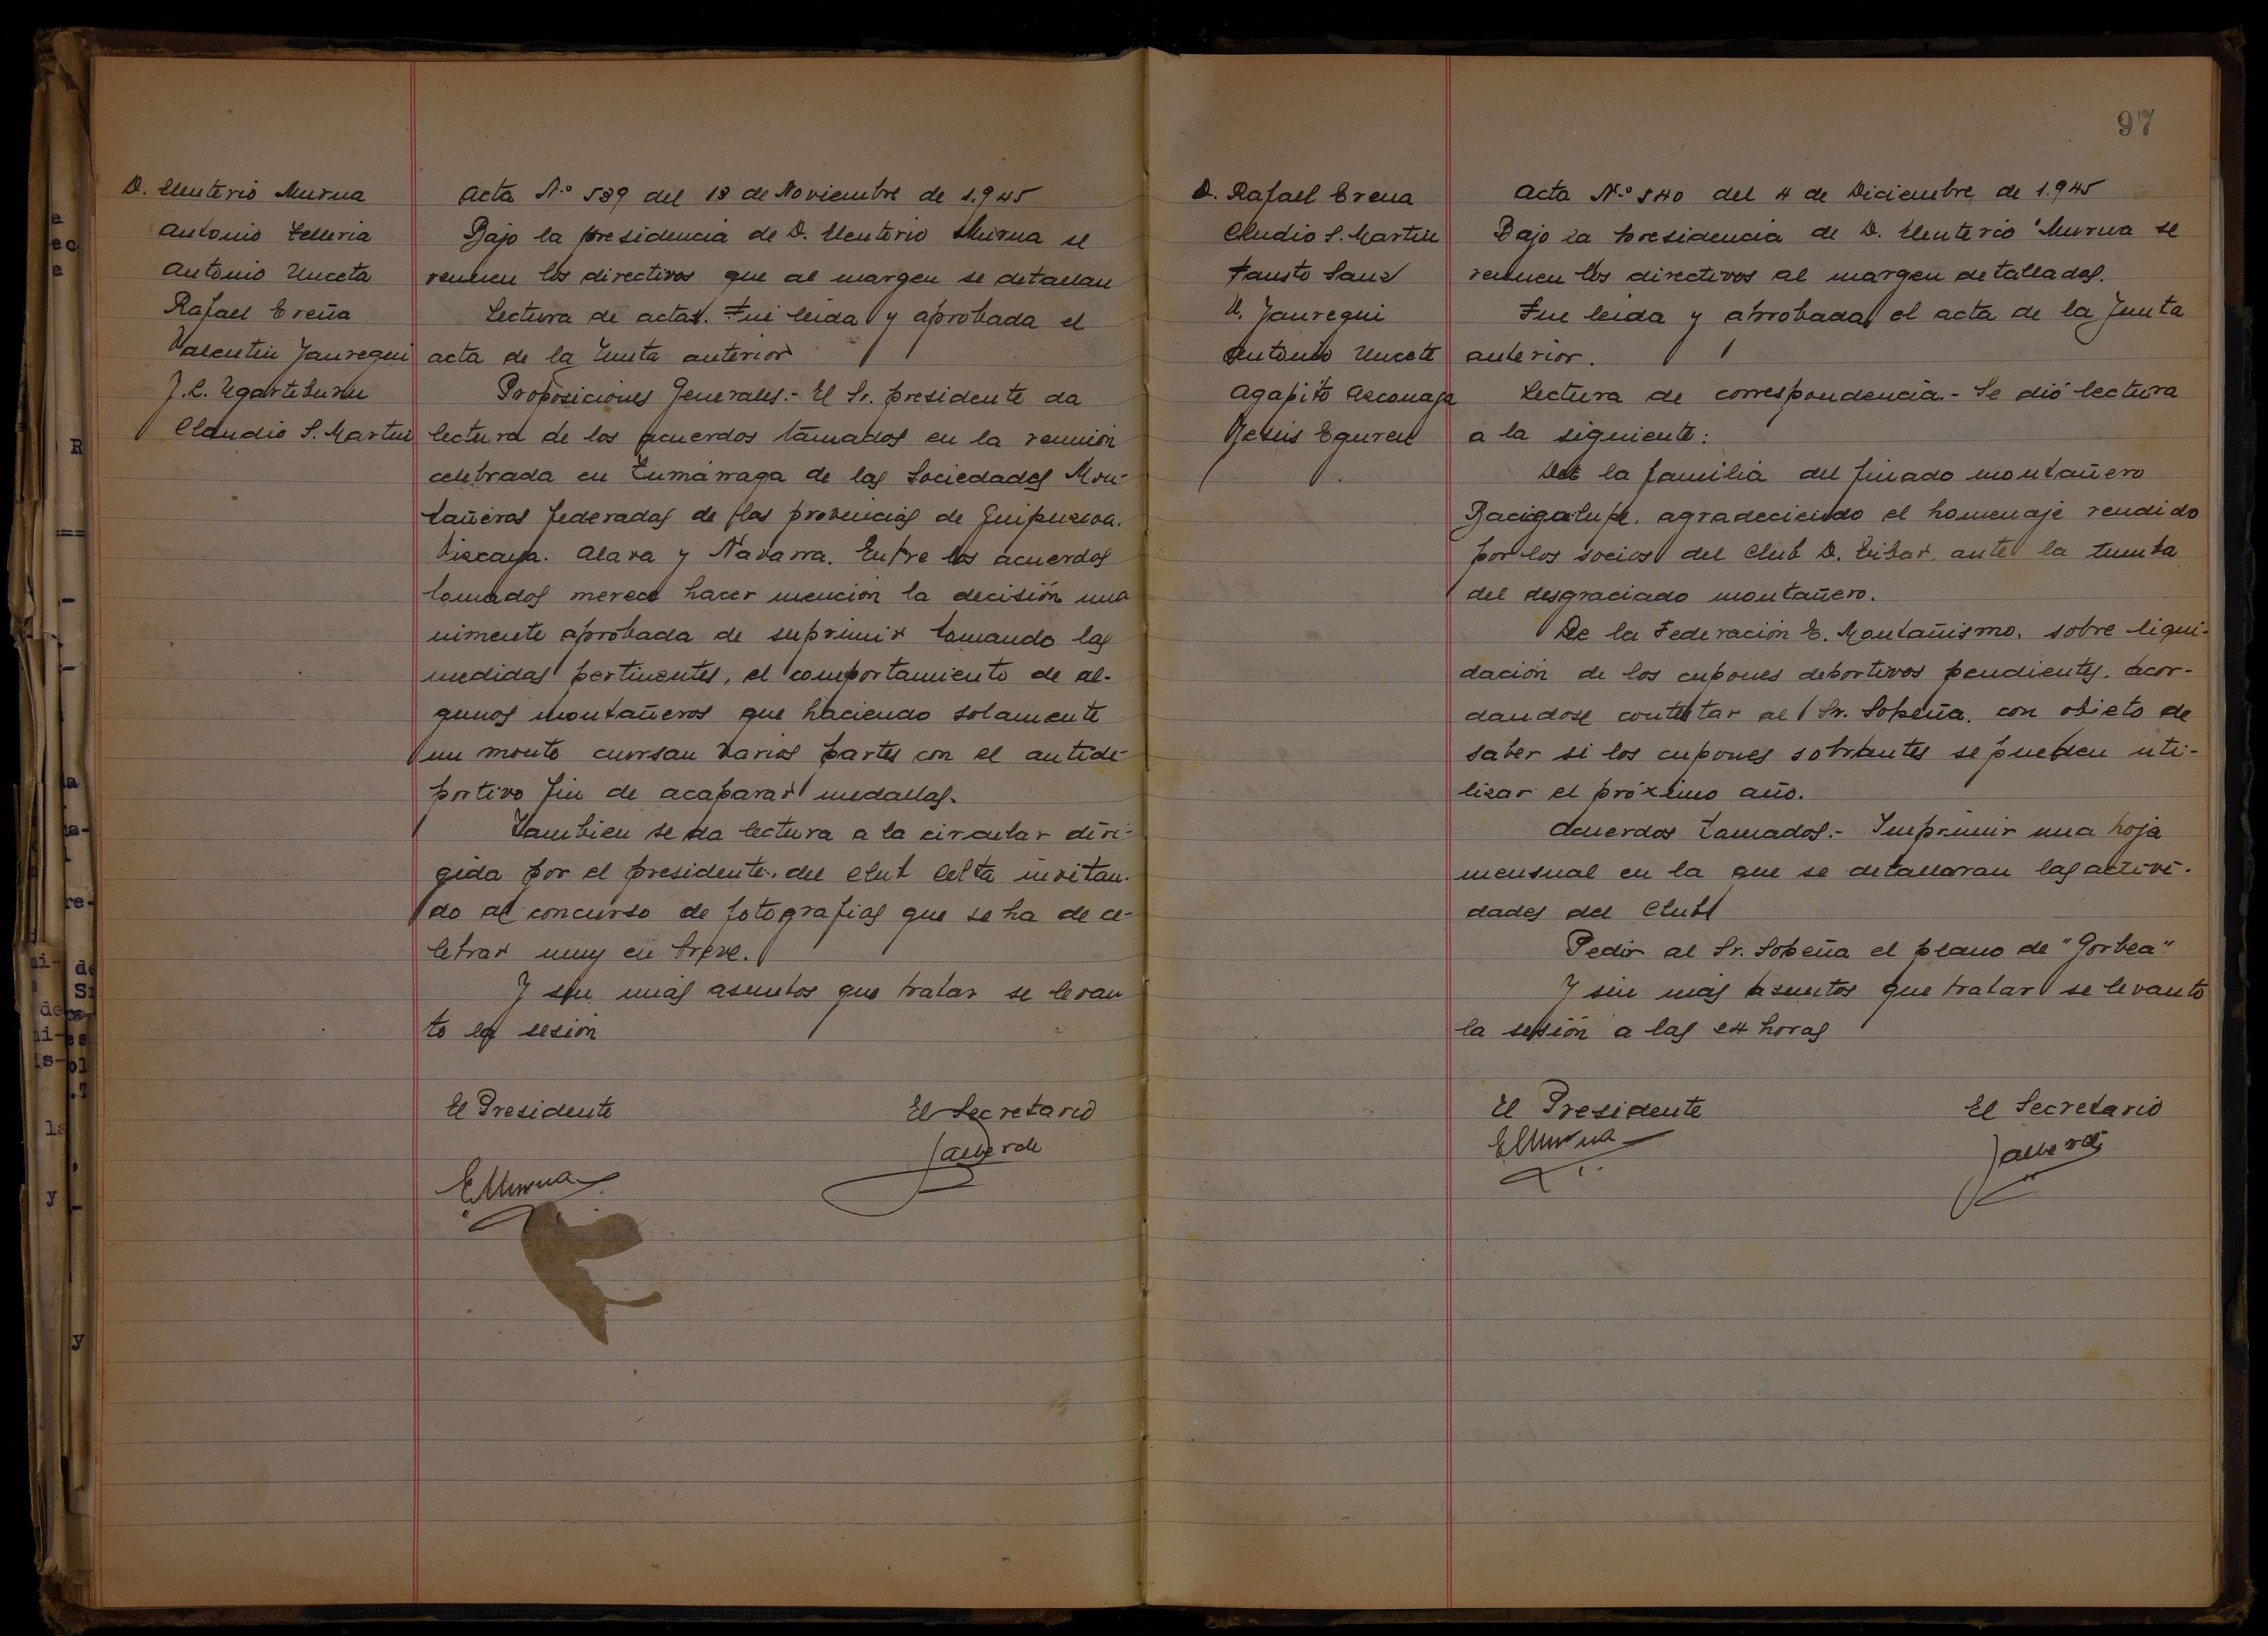 D. Eleuterio Murua
Antonio Telleria
Antonio Unceta
Rafael Ereña
Valentin Jauregui
J.L. Ugarteburu
Claudio S. Martin
Acta N.º 539 del 18 de Noviembre de 1.945
Bajo la presidencia de D. Eleuterio Murua se
reunen los directivos que al margen se detallan
Lectura de actas. Fué leida y aprobada el
acta de la Junta anterior
Proposiciones Generales.- El Sr. presidente da
lectura de los acuerdos tomados en la reunión
celebrada en Zumárraga de las Sociedades Mon-
tañeras federadas de las provincias de Guipuzcoa.
Vizcaya. Alava y Navarra. Entre los acuerdos
tomados merece hacer mención la decisión una
nimente aprobada de suprimir tomando las
medidas pertinentes, el comportamiento de al-
gunos montañeros que haciendo solamente
un monte cursan varios partes con el antide-
portivo fin de acaparar medallas.
Tambien se da lectura a la circular diri-
gida por el presidente. del Club Celta invitan-
do al concurso de fotografias que se ha de ce-
lebrar muy en breve.
Y sin más asuntos que tratar se levan
to la sesión
El Presidente
El Secretario
EMurua
97
D. Rafael Erena
Cludio S. Martin
Fausto Sanz
V. Jauregui
Antonio Uncete
Agapito Azconaga
Jesús Eguren
Acta N.º 540 del 4 de Diciembre de 1.945
Bajo la presidencia de D. Eleuterio Murua se
reunen los directivos al margen detallados.
Fue leida y aprobada el acta de la Junta
anterior.
Lectura de correspondencia.- Se dió lectura
a la siguiente:
De la familia del finado montañero
Bacigalupe, agradeciendo el homenaje rendido
por los socios del Club D. Eibar, ante la tumba
del desgraciado montañero.
De la Federación E. Montañismo, sobre liqui-
dación de los cupones deportivos pendientes, acor-
dandose contestar al Sr. Sopeña, con objeto de
saber si los cupones sobrantes se pueden uti-
lizar el próximo año.
Acuerdos tomados.- Imprimir una hoja
mensual en la que se detallaran las activi-
dades del Club
Pedir al Sr. Sopeña el plano de "Gorbea"
Y sin más asuntos que tratar se levanto
la sesión a las 24 horas
El Presidente
El Secretario
EMurua